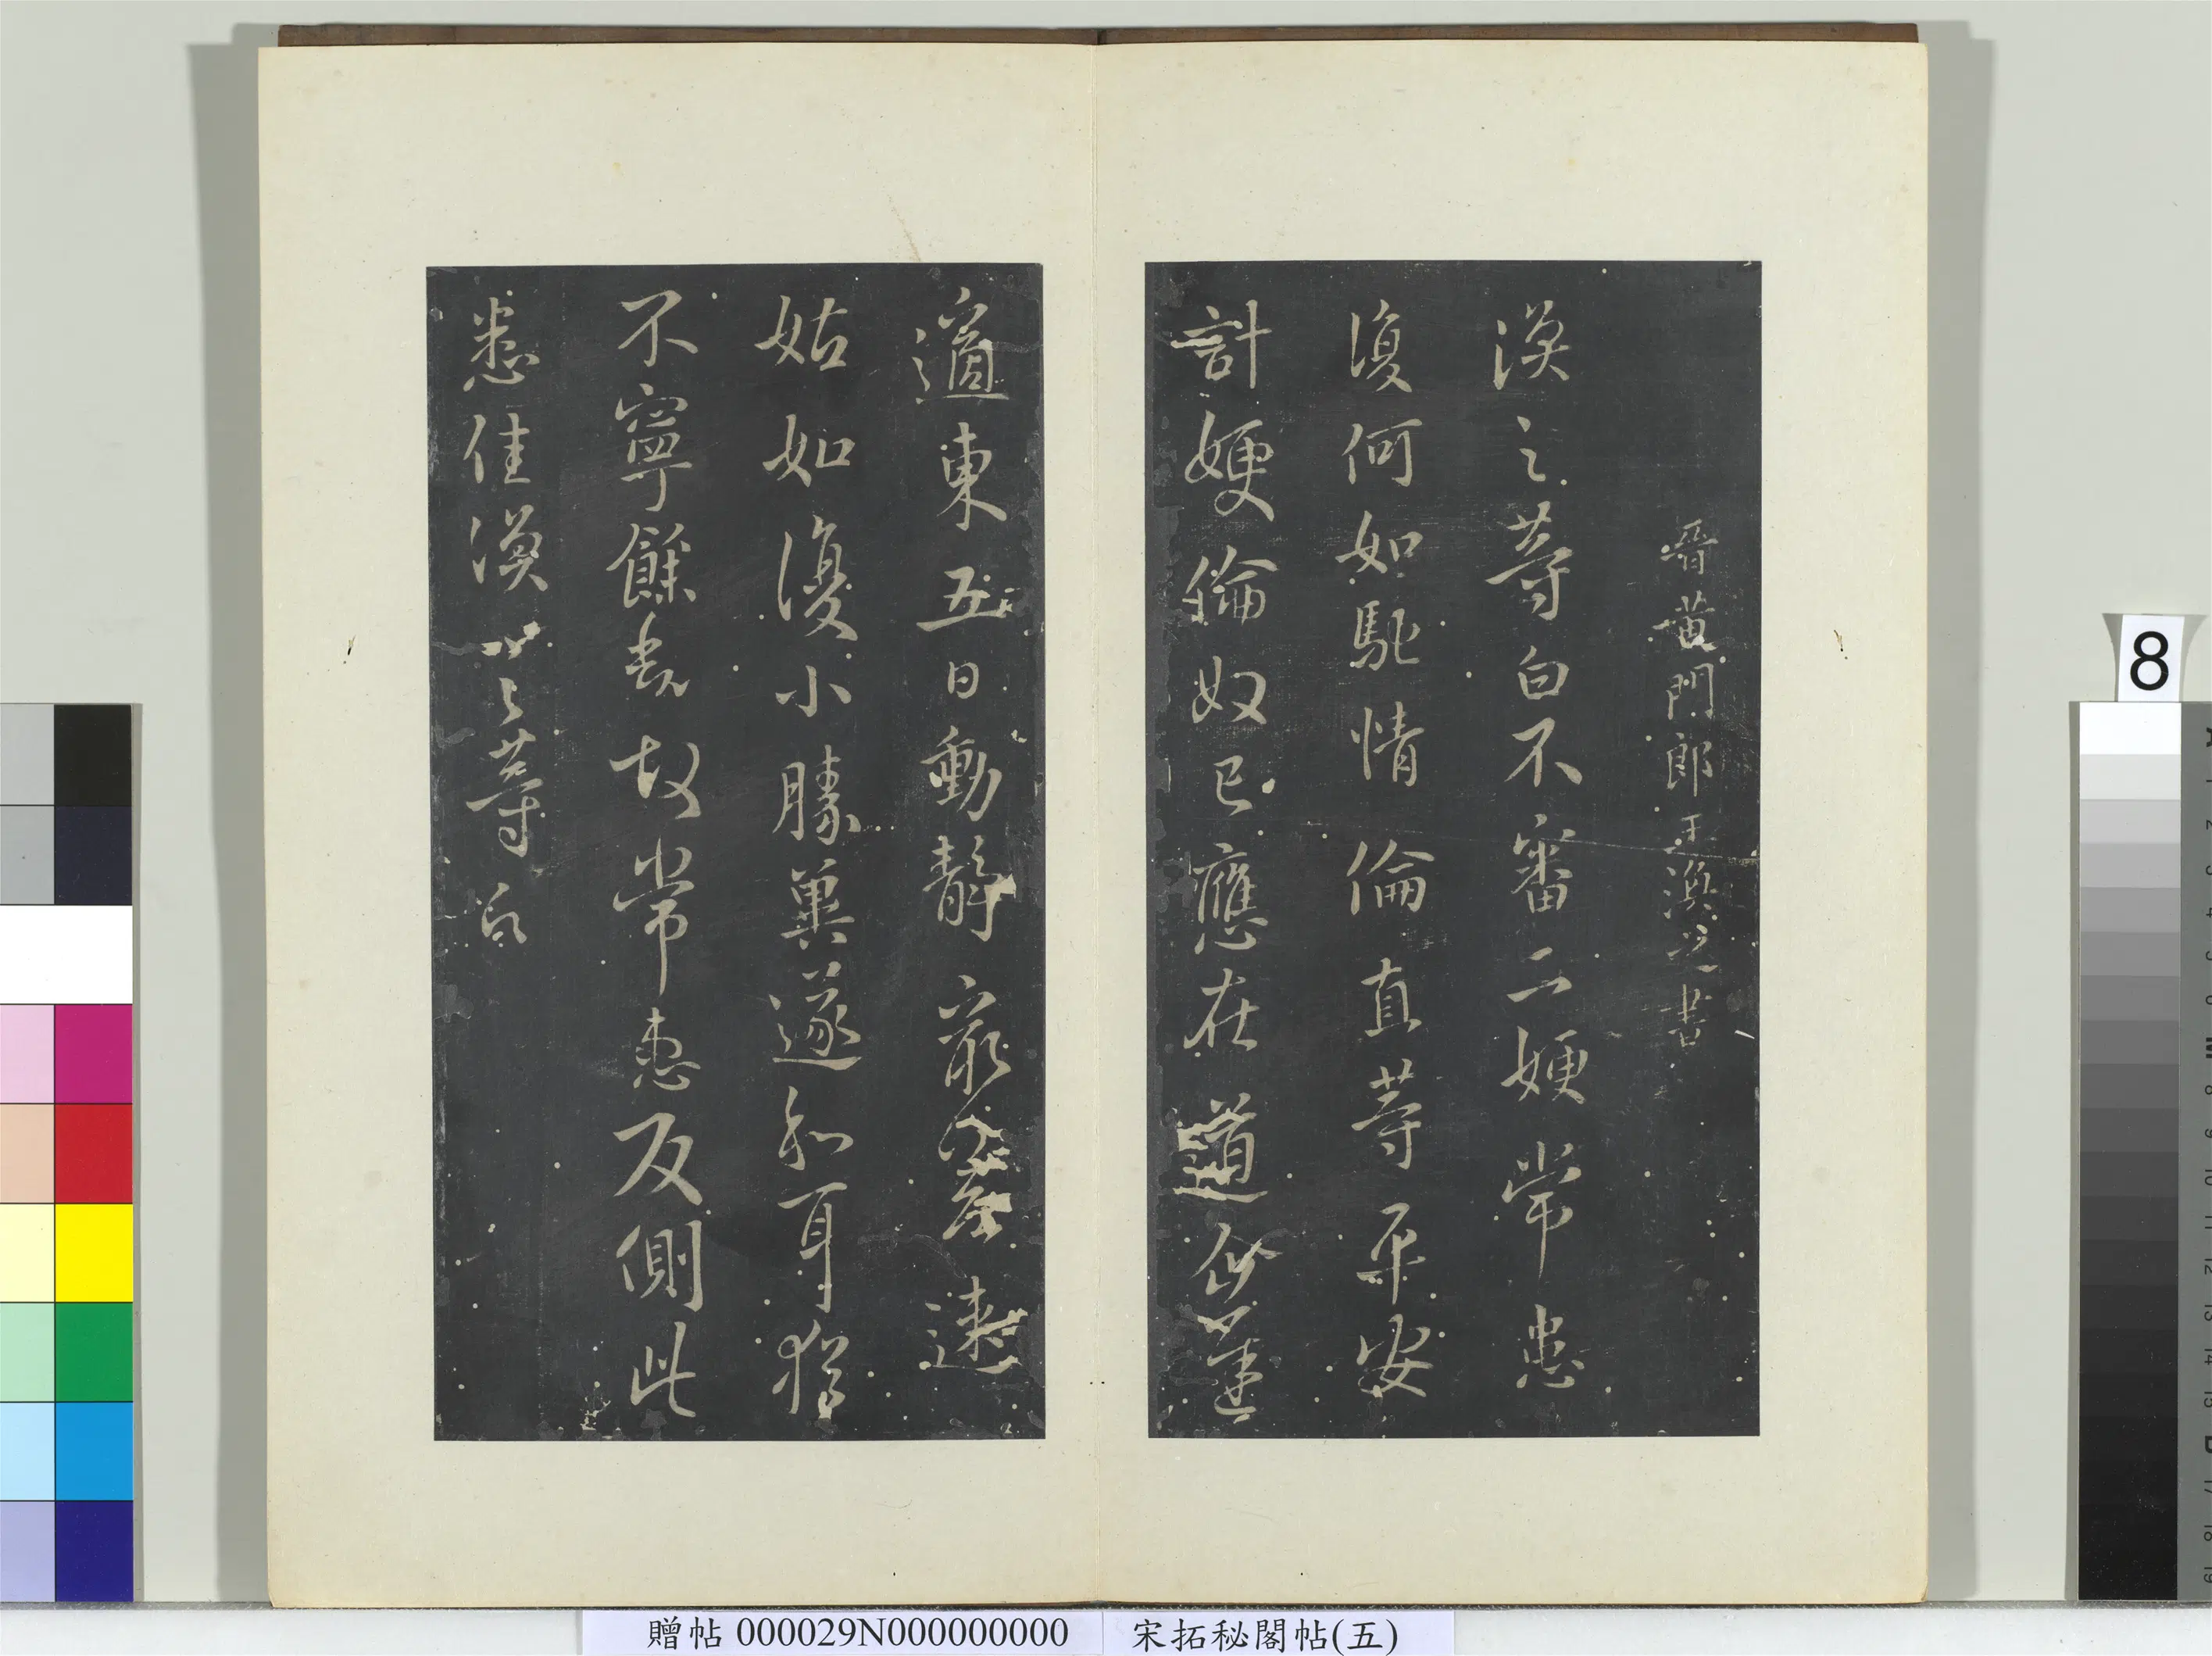 晉黄門郎王渙之書
渙之等白不審二嫂常患
復何如馳情倫直等平安
計嫂倫奴已應在道企遲
適東五日動靜寂寂遠
姑如復小勝冀遂和耳猶
不寧餘悉故常患反側此
悉佳渙之等白
8
贈帖 000029N000000000
宋拓秘閣帖(五)